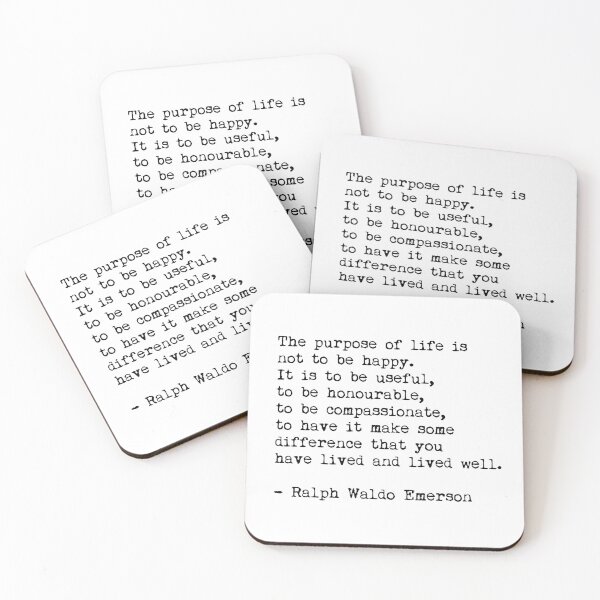 The purpose of life is
not to be happy.
It is to be useful,
to be honourable,
to be compassionate,
to ha    some
you
lived
The purpose of life is
not to be happy.
It is to be useful,
to be honourable,
to be compassionate,
to have it make some
difference that you
have lived and lived well.
The purpose of life is
not to be happy.
It is to be useful,
to be honourable,
to be compassionate,
to have it make some
difference that you
have lived and li
- Ralph Waldo E
The purpose of life is
not to be happy.
It is to be useful,
to be honourable,
to be compassionate,
to have it make some
difference that you
have lived and lived well.
- Ralph Waldo Emerson